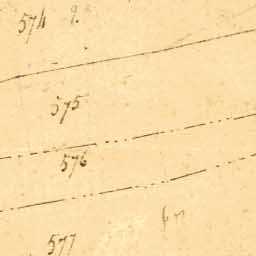 574
575
576
577